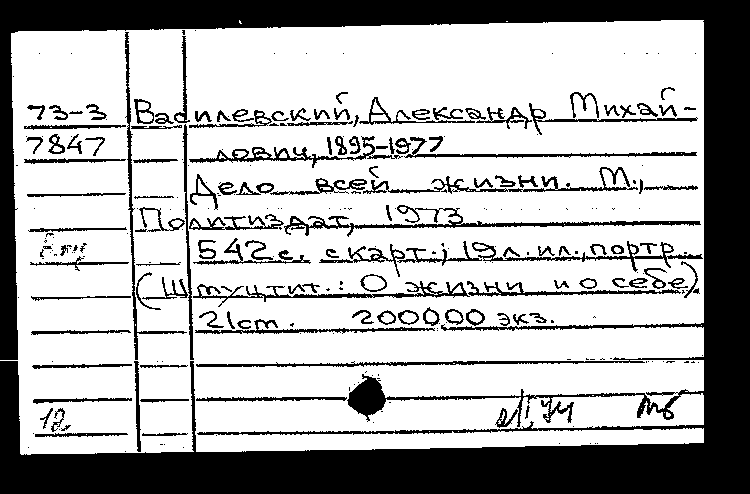 73-3 Василевский, Александр Михай-
7847 лович, 1895-1977
Дело всей жизни. М.,
Политиздат, 1973.
542с. с карт.; 19л.ил., портр.
(Шмуцтит.: О жизни и о себе)
21см. 200000 экз.
12